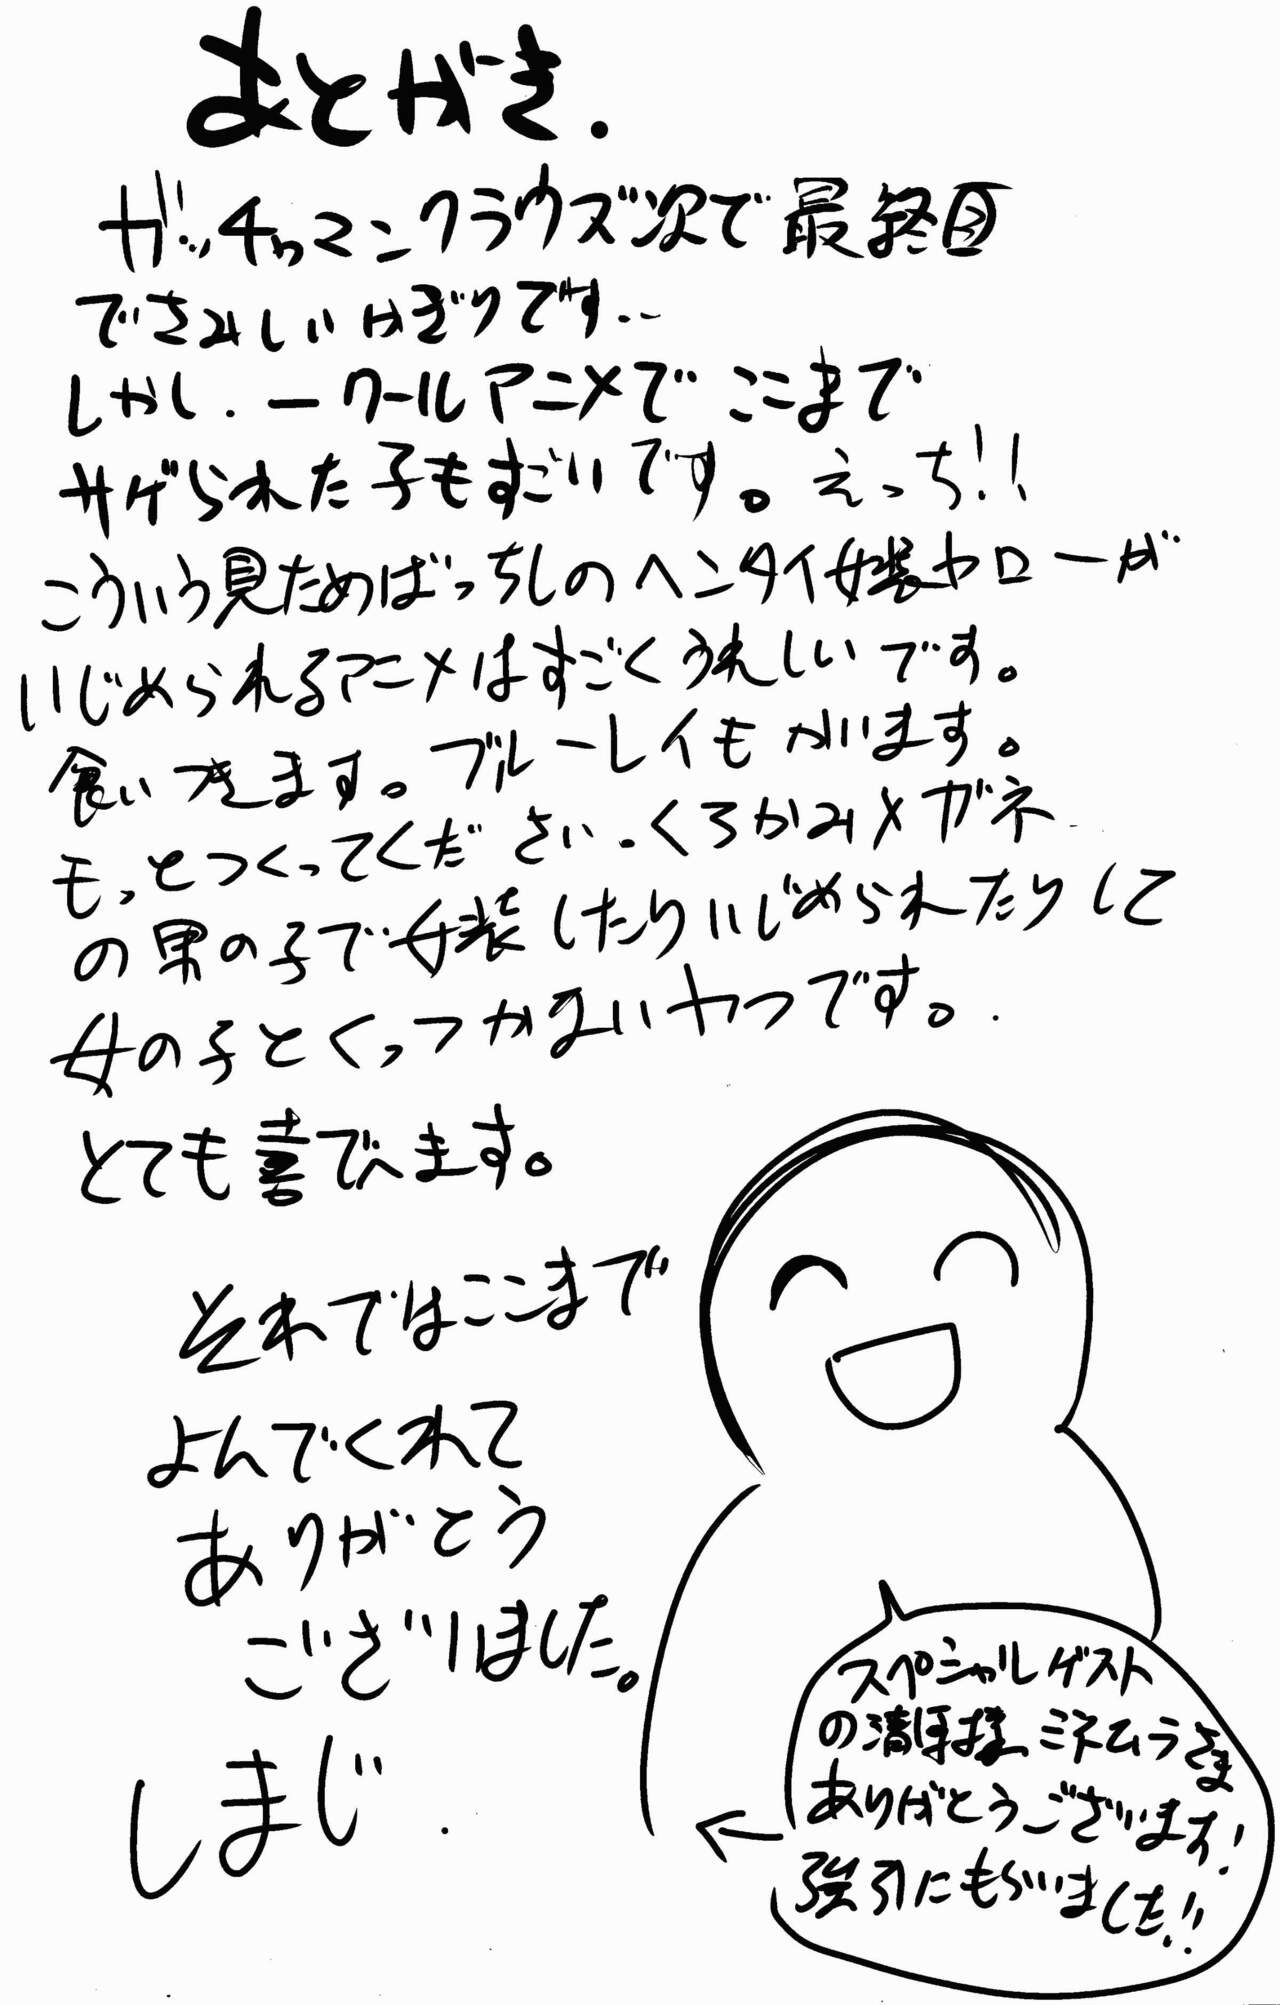 あとがき.
ガッチャマンクラウズ次で最終回
でさみしいかぎりです..
しかし.一クールアニメでここまで
サゲられた子もすごいです。えっち!!
こういう見ためばっちしのヘンタイ女装ヤローが
いじめられるアニメはすごくうれしいです。
食いつきます。ブルーレイもかいます。
もっとつくってください.くろかみメガネ
の男の子で女装したりいじめられたりして
女の子とくっつかないヤつです。
とても喜びます。
それではここまで
よんでくれて
ありがとう
ございました。
しまじ.
スペシャルゲスト
の清澤様ミネムラさま
ありがとうございます!
強引にもらいました!!